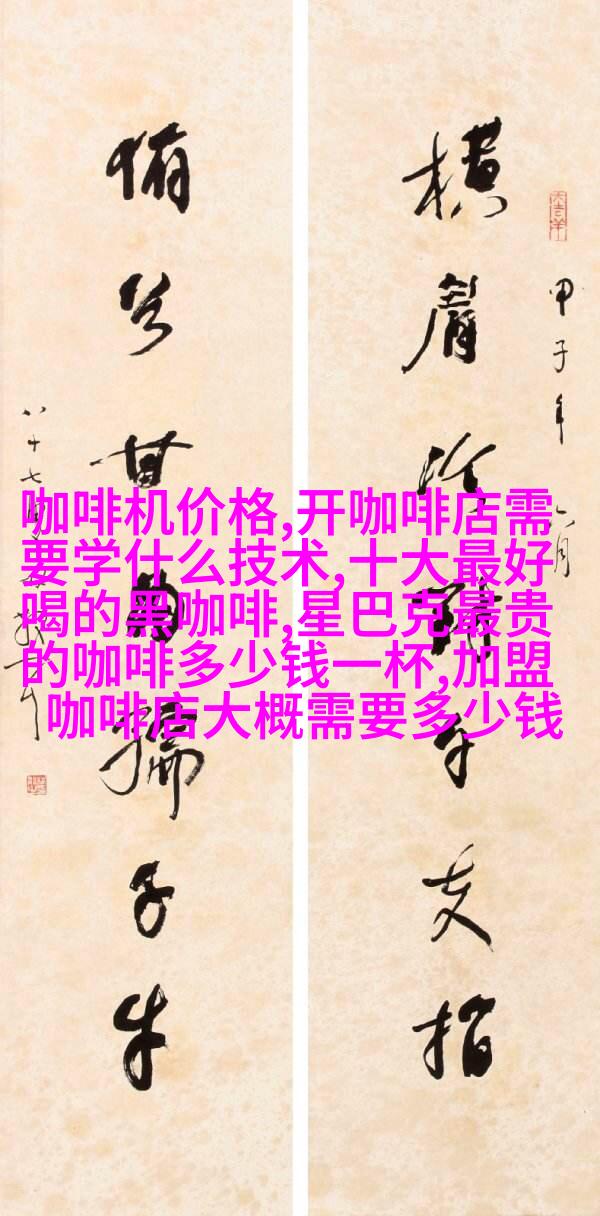 甲子年八月
横眉冷对千夫指
俯首甘为孺子牛
八十七
咖啡机价格,开咖啡店需
要学什么技术,十大最好
喝的黑咖啡,星巴克最贵
的咖啡多少钱一杯,加盟
咖啡店大概需要多少钱